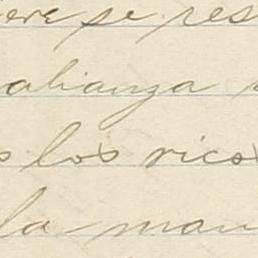 ere se res
alianza
s los ricos
la man